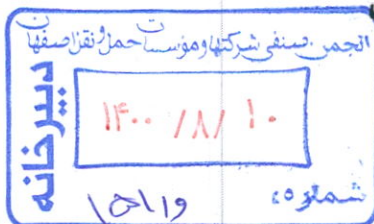 انجمن صنفی شرکتها و مؤسسات حمل و نقل اصفهان
دبیرخانه
۱۴۰۰ /۸/ ۱۰
شماره: